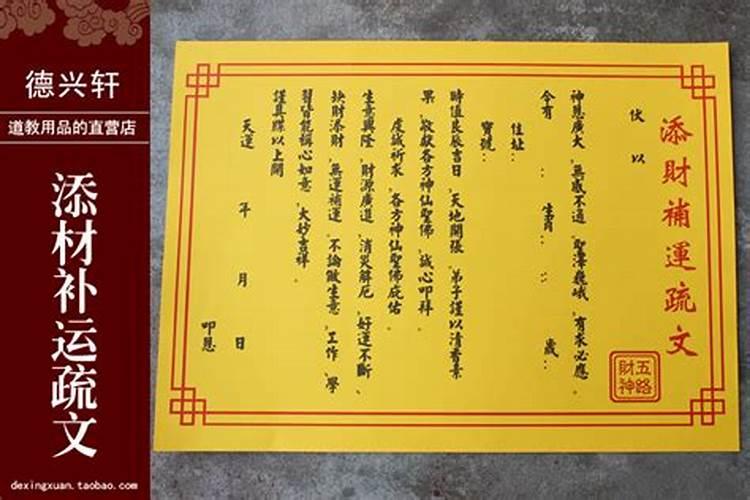 德兴轩
道教用品的直营店
添材补运疏文
dexingxuan.taobao.com
添財補運疏文
五路財神
伏以
神恩廣大、無感不通、聖澤巍峨、有求必應。
今有：生肖：：歲：
住址：
寶號：
時值良辰吉日、天地開張、弟子謹以清香素
果、敬獻各方神仙聖佛、誠心叩拜。
虔誠祈求、各方神仙聖佛庇佑。
生意興隆、財源廣進、消災解厄、好運不斷、
缺財添財、無運補運、不論做生意、工作、學
習皆能稱心如意、大妙吉祥。
謹具牒以上聞
天運 年 月 日
叩恩